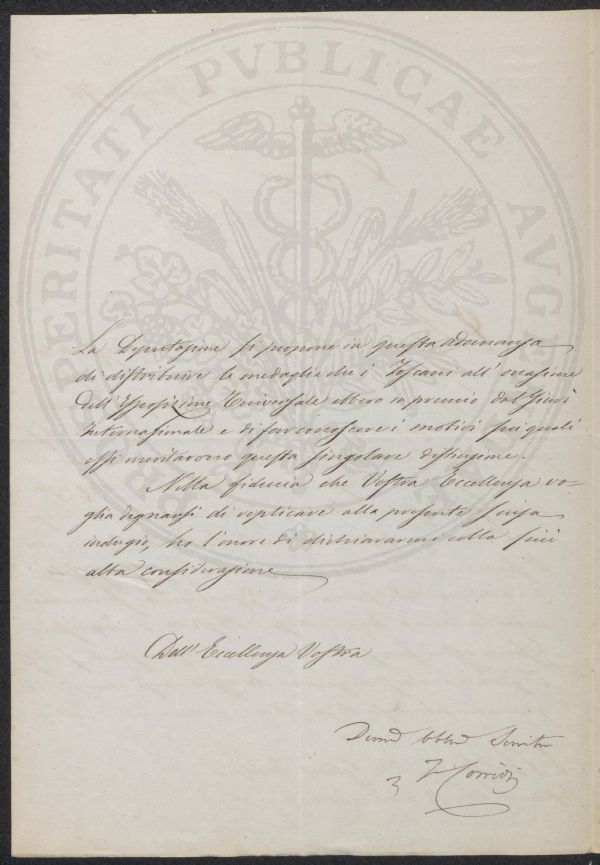 PROSPERITATI PVBLICAE AVGENDAE
La Deputazione si propone in questa adunanza
di distribuire le medaglie che i Toscani all'occasione
dell'Esposizione Universale ebbero in premio dal Giurì
Internazionale e di far conoscere i motivi pei quali
essi meritarono questa singolare distinzione.
Nella fiducia che Vostra Eccellenza vo-
glia degnarsi di replicare alla presente senza
indugio, ho l'onore di dichiararmi colla più
alta considerazione
Dell'Eccellenza Vostra
Devmo Obbmo Servitre
F. Corridi